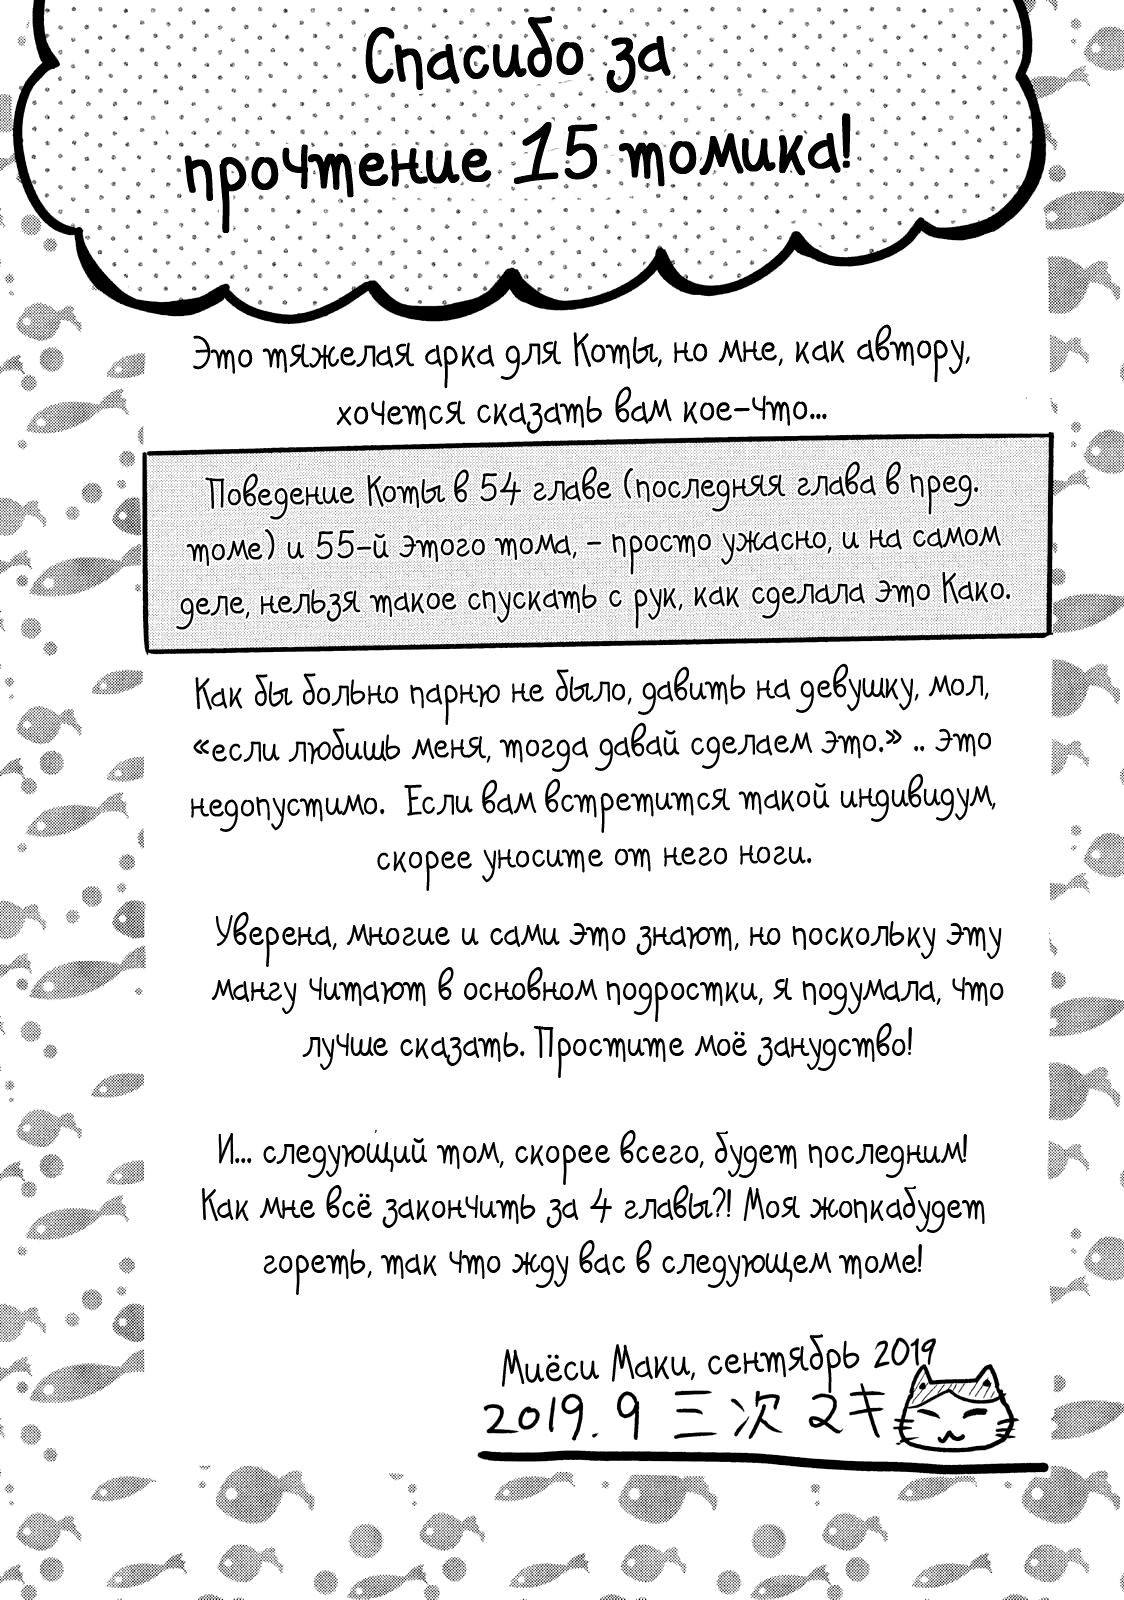 Спасибо за
прочтение 15 томика!
Это тяжелая арка для Коты, но мне, как автору,
хочется сказать вам кое-что...
Поведение Коты в 54 главе (последняя глава в пред.
томе) и 55-й этого тома, - просто ужасно, и на самом
деле, нельзя такое спускать с рук, как сделала это Како.
Как бы больно парню не было, давить на девушку, мол,
«если любишь меня, тогда давай сделаем это.» .. это
недопустимо. Если вам встретится такой индивидум,
скорее уносите от него ноги.
Уверена, многие и сами это знают, но поскольку эту
мангу читают в основном подростки, я подумала, что
лучше сказать. Простите моё занудство!
И... следующий том, скорее всего, будет последним!
Как мне всё закончить за 4 главы?! Моя жопкабудет
гореть, так что жду вас в следующем томе!
Миёси Маки, сентябрь 2019
2019.9 三次マキ